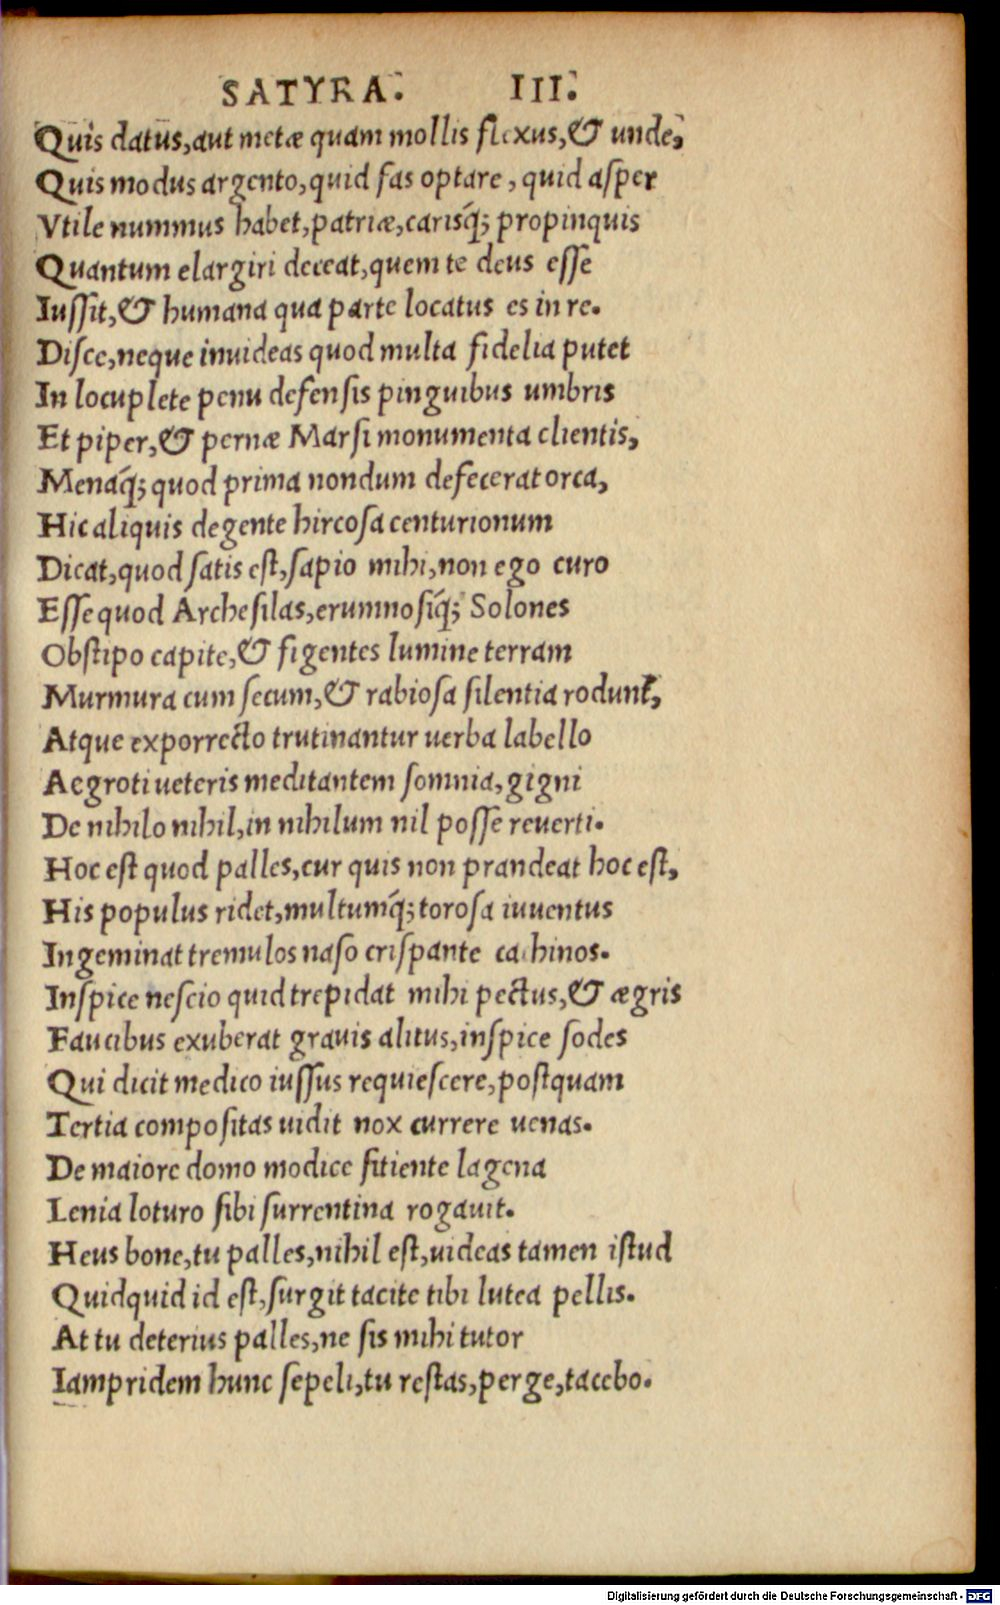 SATYRA. III.
Quis datus, aut metæ quam mollis flexus, & unde,
Quis modus argento, quid fas optare, quid asper
Vtile nummus habet, patriæ, carisq́; propinquis
Quantum elargiri deceat, quem te deus esse
Iussit, & humana qua parte locatus es in re.
Disce, neque inuideas quod multa fidelia putet
In locuplete penu defensis pinguibus umbris
Et piper, & pernæ Marsi monumenta clientis,
Menaq́; quod prima nondum defecerat orca,
Hic aliquis de gente hircosa centurionum
Dicat, quod satis est, sapio mihi, non ego curo
Esse quod Archesilas, erumnosiq́; Solones
Obstipo capite, & figentes lumine terram
Murmura cum secum, & rabiosa silentia rodunt,
Atque exporrecto trutinantur uerba labello
Aegroti ueteris meditantem somnia, gigni
De nihilo nihil, in nihilum nil posse reuerti.
Hoc est quod palles, cur quis non prandeat hoc est,
His populus ridet, multumq́; torosa iuuentus
Ingeminat tremulos naso crispante cachinos.
Inspice nescio quid trepidat mihi pectus, & ægris
Faucibus exuberat grauis alitus, inspice sodes
Qui dicit medico iussus requiescere, postquam
Tertia compositas uidit nox currere uenas.
De maiore domo modice sitiente lagena
Lenia loturo sibi surrentina rogauit.
Heus bone, tu palles, nihil est, uideas tamen istud
Quidquid id est, surgit tacite tibi lutea pellis.
At tu deterius palles, ne sis mihi tutor
Iampridem hunc sepeli, tu restas, perge, tacebo.
Digitalisierung gefördert durch die Deutsche Forschungsgemeinschaft - DFG